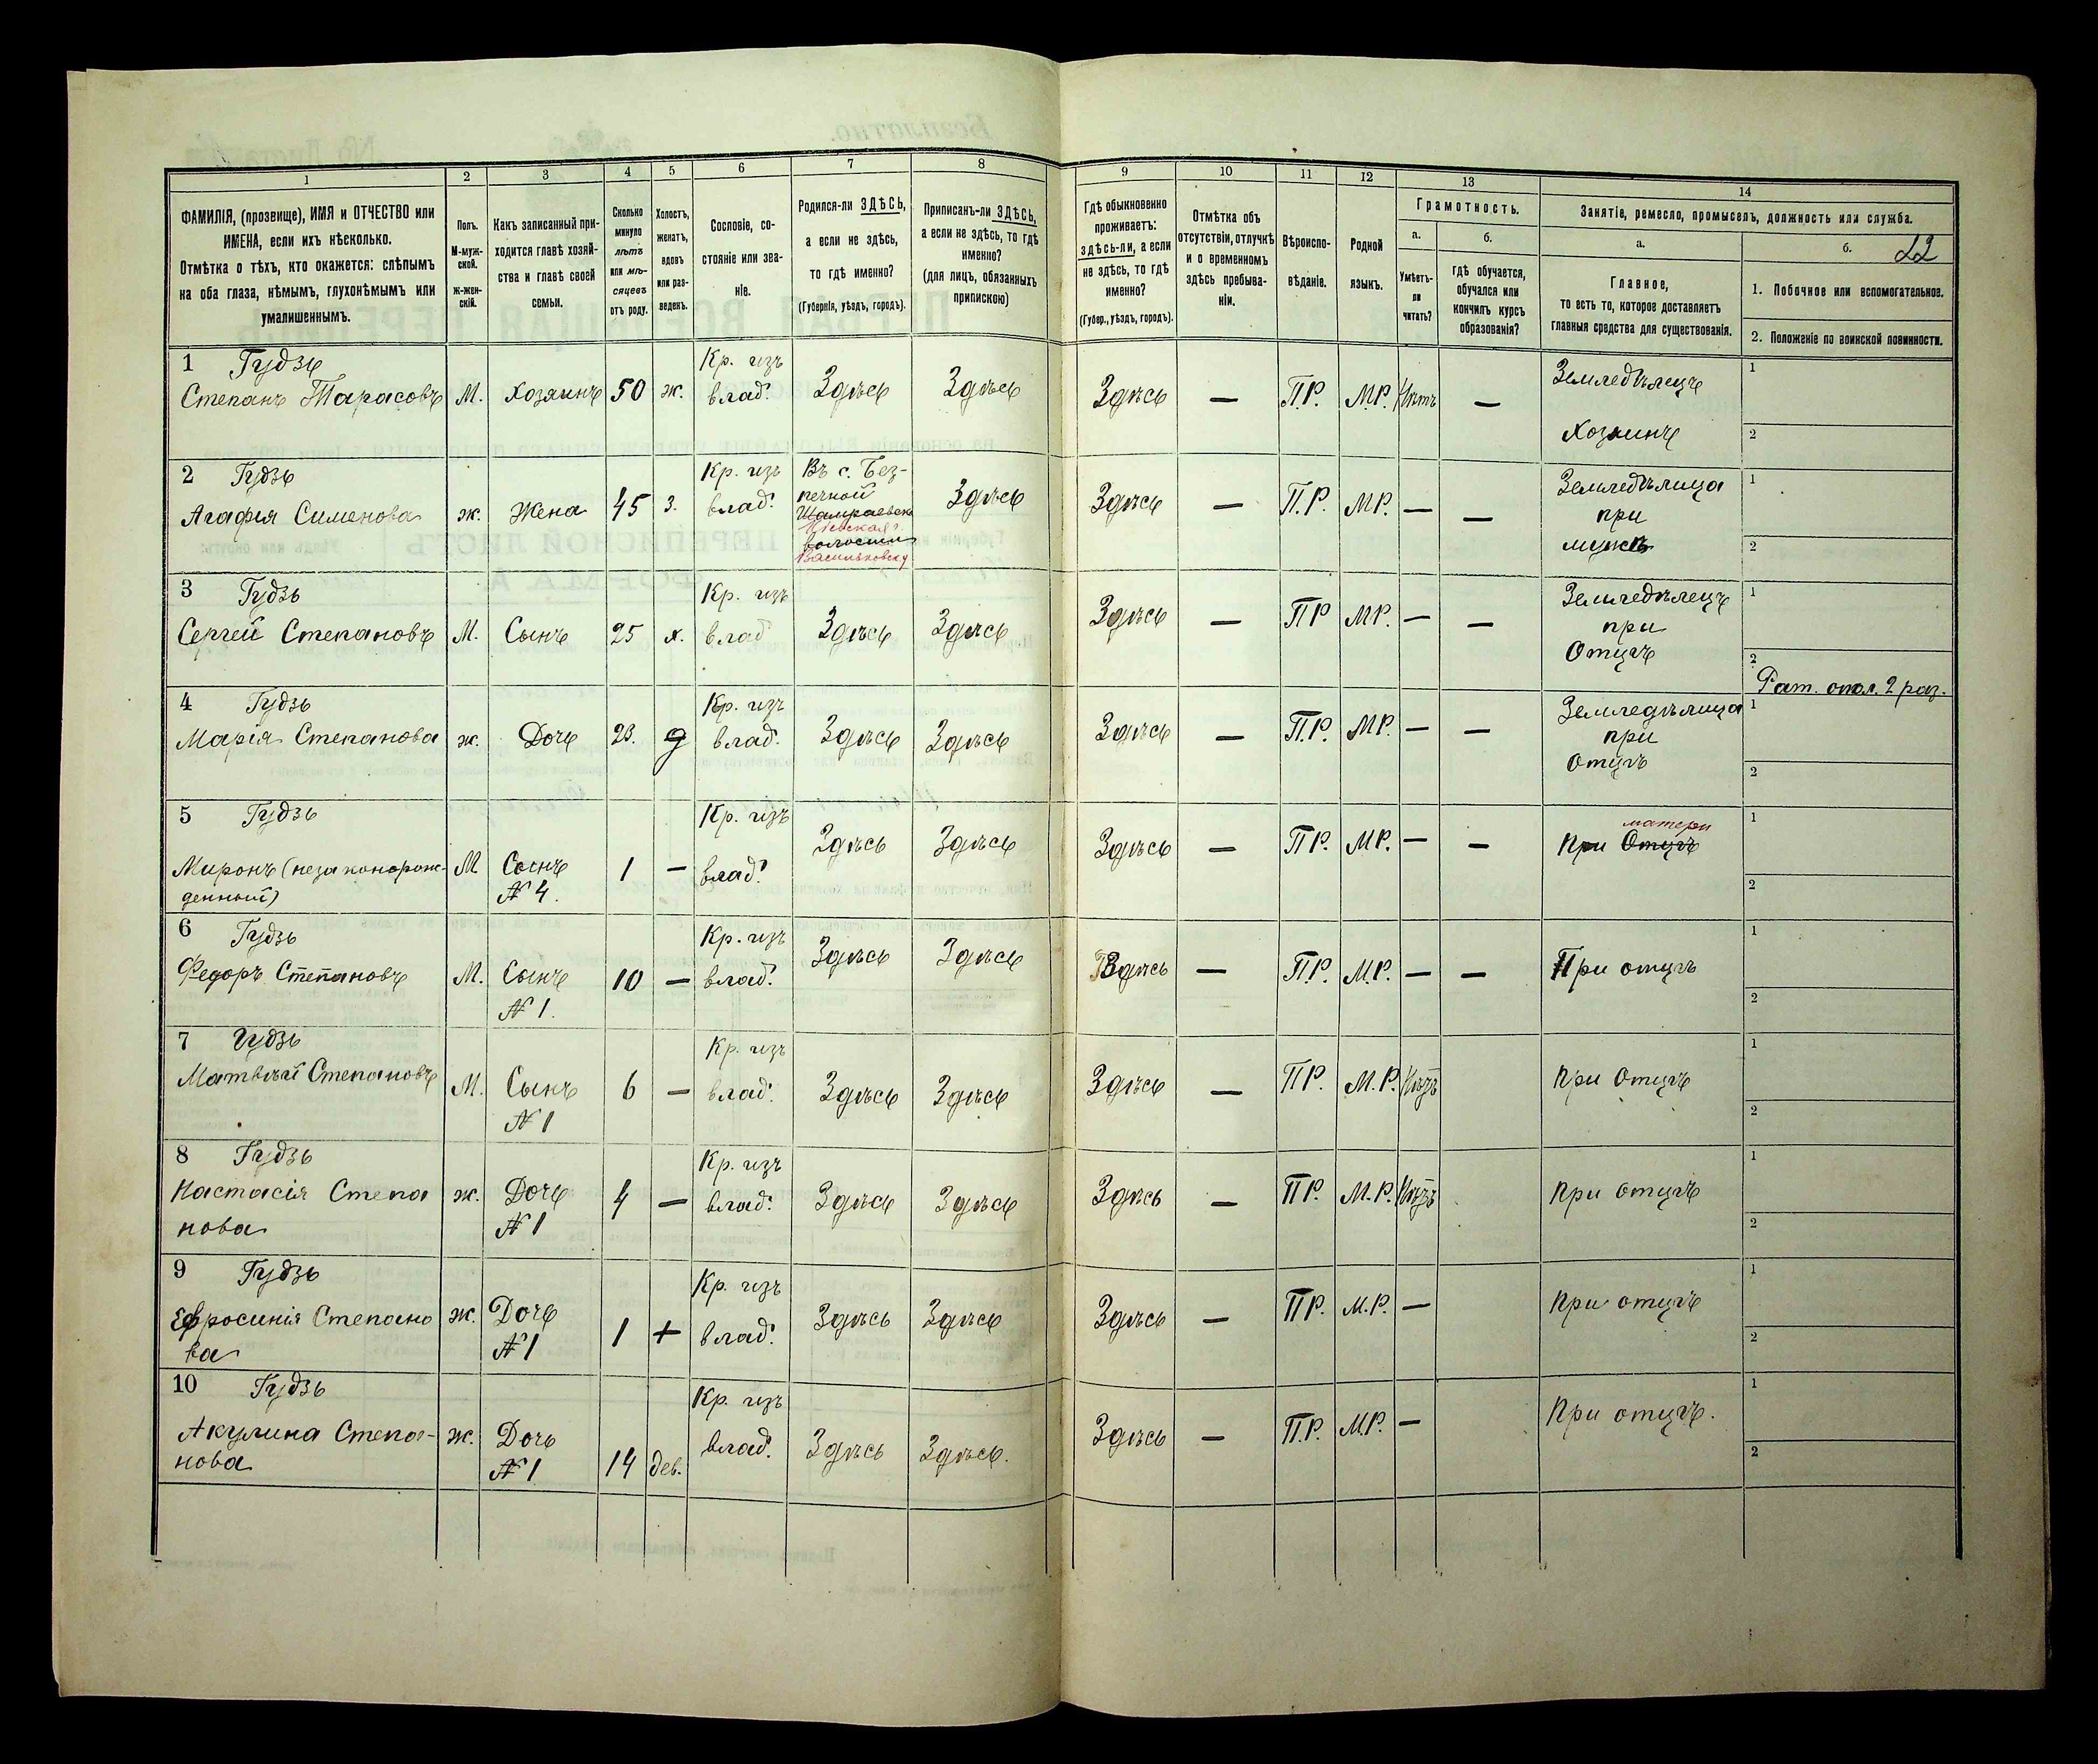 1
2
3
4
5
6
7
8
9
10
11
12
13
14
ФАМИЛІЯ, (прозвище), ИМЯ и ОТЧЕСТВО или
ИМЕНА, если ихъ нѣсколько.
Отмѣтка о тѣхъ, кто окажется: слѣпымъ
на оба глаза, нѣмымъ, глухонѣмымъ или
умалишеннымъ.
Полъ.
М-муж-
ской.
ж-жен-
скій.
Какъ записанный при-
ходится главѣ хозяй-
ства и главѣ своей
семьи.
Сколько
минуло
лѣтъ
или мѣ-
сяцевъ
отъ роду.
Холостъ,
женатъ,
вдовъ
или раз-
веденъ.
Сословіе, со-
стояніе или зва-
ніе.
Родился-ли ЗДѢСЬ,
а если не здѣсь,
то гдѣ именно?
(Губернія, уѣздъ, городъ).
Приписанъ-ли ЗДѢСЬ,
а если не здѣсь, то гдѣ
именно?
(для лицъ, обязанныхъ
припискою)
Гдѣ обыкновенно
проживаетъ:
здѣсь-ли, а если
не здѣсь, то гдѣ
именно?
(Губер., уѣздъ, городъ).
Отмѣтка объ
отсутствіи, отлучкѣ
и о временномъ
здѣсь пребыва-
ніи.
Вѣроиспо-
вѣданіе.
Родной
языкъ.
Грамотность.
а.
Умѣетъ-
ли
читать?
б.
гдѣ обучается,
обучался или
кончилъ курсъ
образованія?
Занятіе, ремесло, промыселъ, должность или служба.
а.
Главное,
то есть то, которое доставляетъ
главныя средства для существованія.
б.
22
1. Побочное или вспомогательное.
2. Положеніе по воинской повинности.
1 Гудзь
Степанъ Тарасовъ М. Хозяинъ 50 ж. Кр. изъ влад. Здѣсь Здѣсь Здѣсь — П.Р. М.Р. Нѣтъ — Земледѣлецъ
Хозяинъ
1
2
2 Гудзь
Агафия Сименова ж. Жена 45 з. Кр. изъ влад. Въ с. Без-
печной
Шамраевск
Кіевская г.
волости
Васильковску
Здѣсь Здѣсь — П.Р. МР. — — Земледѣлица
при
мужѣ
1
2
3 Гудзь
Сергей Степановъ М. Сынъ 25 х. Кр. изъ влад Здѣсь Здѣсь Здѣсь — ПР МР. — — Земледѣлецъ
при
Отцѣ
1
2
Рат. опол. 2 раз.
4 Гудзь
Марія Степанова ж. Дочь 23. д Кр. изъ влад. Здѣсь Здѣсь Здѣсь — П.Р. МР. — — Земледѣлица
при
Отцѣ
1
2
5 Гудзь
Миронъ (незаконорож-
денный)
М Сынъ
№ 4.
1 — Кр. изъ влад. Здѣсь Здѣсь Здѣсь — ПР. МР. — —
матери
При Отцѣ
1
2
6 Гудзь
Федоръ Степановъ М. Сынъ
№ 1.
10 — Кр. изъ влад. Здѣсь Здѣсь Здѣсь — П.Р. М.Р. — — При отцѣ
1
2
7 Гудзь
Матвѣй Степановъ М. Сынъ
№ 1
6 — Кр. изъ влад. Здѣсь Здѣсь Здѣсь — ПР. М.Р. При Отцѣ
1
2
8 Гудзь
Настасія Степа
нова
ж. Дочь
№ 1
4 — Кр. изъ влад. Здѣсь Здѣсь Здѣсь — ПР. М.Р. При отцѣ
1
2
9 Гудзь
Ефросинія Степано
ва
ж. Дочь
№ 1
1 + Кр. изъ влад. Здѣсь Здѣсь Здѣсь — ПР. М.Р. — При отцѣ
1
2
10 Гудзь
Акулина Степа-
нова
ж. Дочь
№ 1
14 дев. Кр. изъ влад. Здѣсь Здѣсь. Здѣсь — П.Р. М.Р. — При отцѣ.
1
2